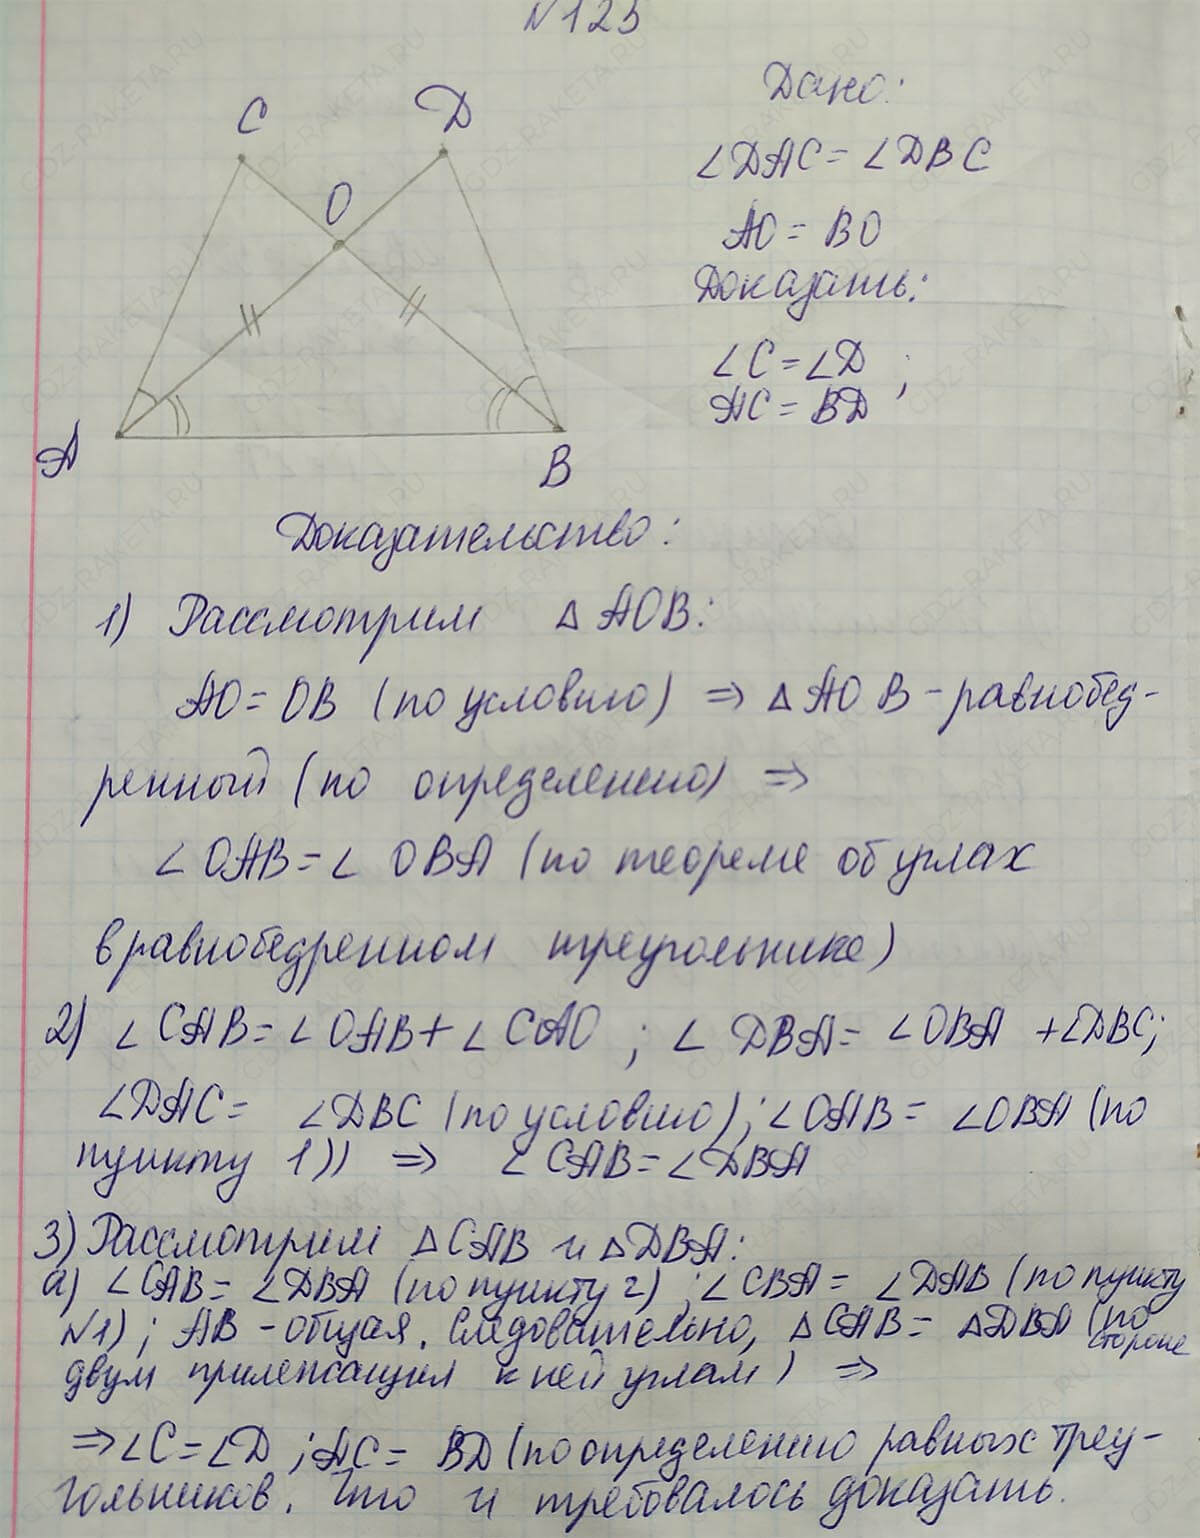 №125
C
D
O
A
B
Дано:
∠DAC = ∠DBC
AO = BO
Доказать:
∠C = ∠D ;
AC = BD
Доказательство:
1) Рассмотрим △AOB:
AO = OB (по условию) ⇒ △AOB - равнобед-
ренный (по определению) ⇒
∠OAB = ∠OBA (по теореме об углах
в равнобедренном треугольнике)
2) ∠CAB = ∠OAB + ∠CAO ; ∠DBA = ∠OBA + ∠DBC;
∠DAC = ∠DBC (по условию) ; ∠OAB = ∠OBA (по
пункту 1)) ⇒ ∠CAB = ∠DBA
3) Рассмотрим △CAB и △DBA:
а) ∠CAB = ∠DBA (по пункту 2) ; ∠CBA = ∠DAB (по пункту
№1) ; AB - общая. Следовательно, △CAB = △DBA (по стороне
двум прилежащим к ней углам) ⇒
⇒ ∠C = ∠D ; AC = BD (по определению равных треу-
гольников. Что и требовалось доказать.
GDZ-RAKETA.RU